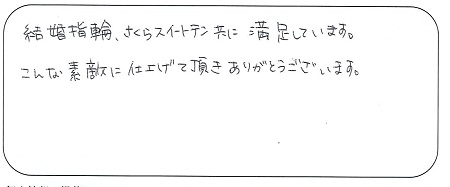 結婚指輪、さくらスイートテン共に満足しています。
こんな素敵に仕上げて頂きありがとうございます。